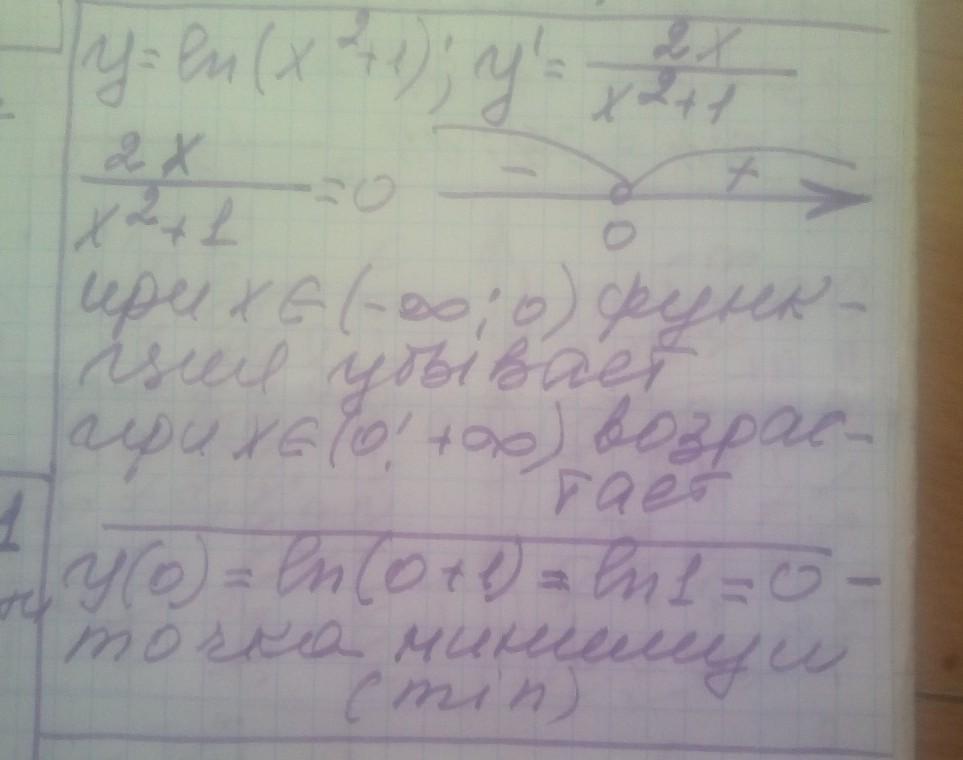 y = ln(x²+1); y' = 2x / x²+1
2x / x²+1 = 0 - + 0
при x ∈ (-∞; 0) функ-
ция убывает
при x ∈ (0; +∞) возрас-
тает
y(0) = ln(0+1) = ln1 = 0 -
точка минимум
(min)
1